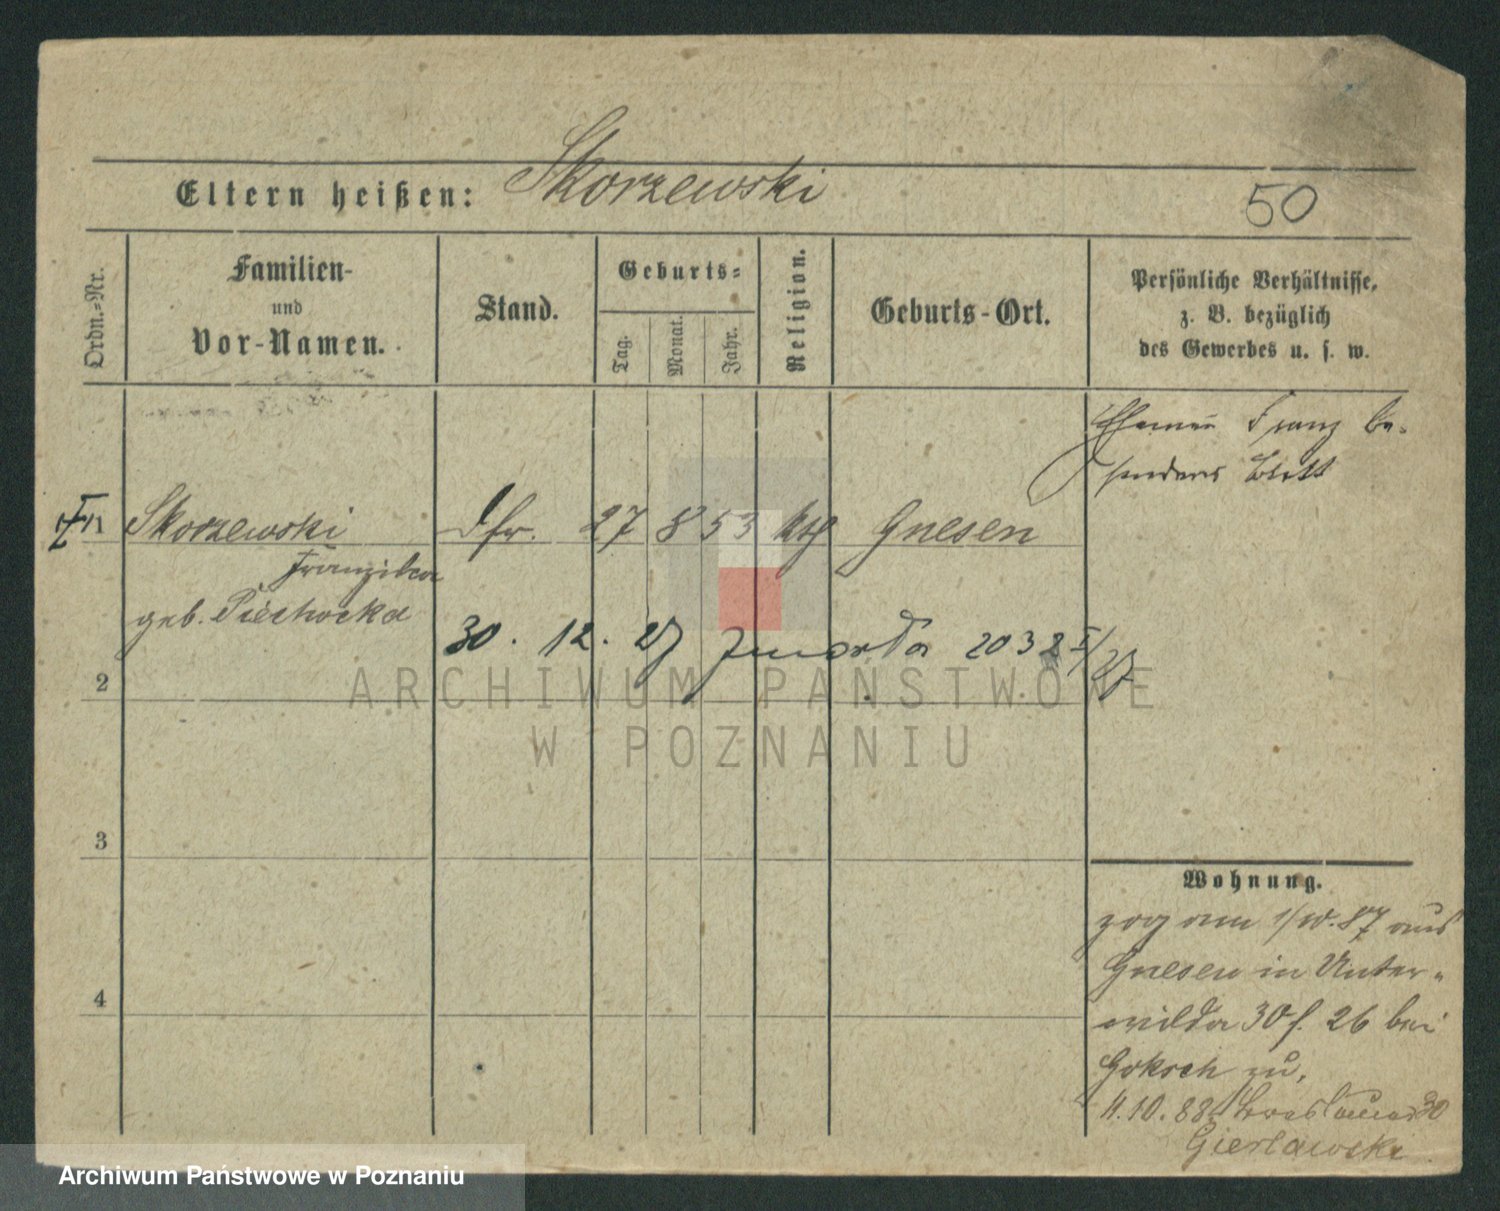 Eltern heißen: Skorzewski
50
Ordn.-Nr.
Familien-
und
Vor-Namen.
Stand.
Geburts-
Tag.
Monat.
Jahr.
Religion.
Geburts-Ort.
Persönliche Verhältnisse,
z. B. bezüglich
des Gewerbes u. s. w.
Franz be-
sonderes Blatt
1 Skorzewski 27 8 53 kth Gnesen
Franziska
geb. Piechocka
30. 12. 27
2
3
4
Wohnung.
zog am 1/10.87 aus
Gnesen in Unter-
wilda 30 f. 26 bei
Goksch zu,
11.10.88. 30
Gierlawski
ARCHIWUM PAŃSTWOWE
W POZNANIU
Archiwum Państwowe w Poznaniu